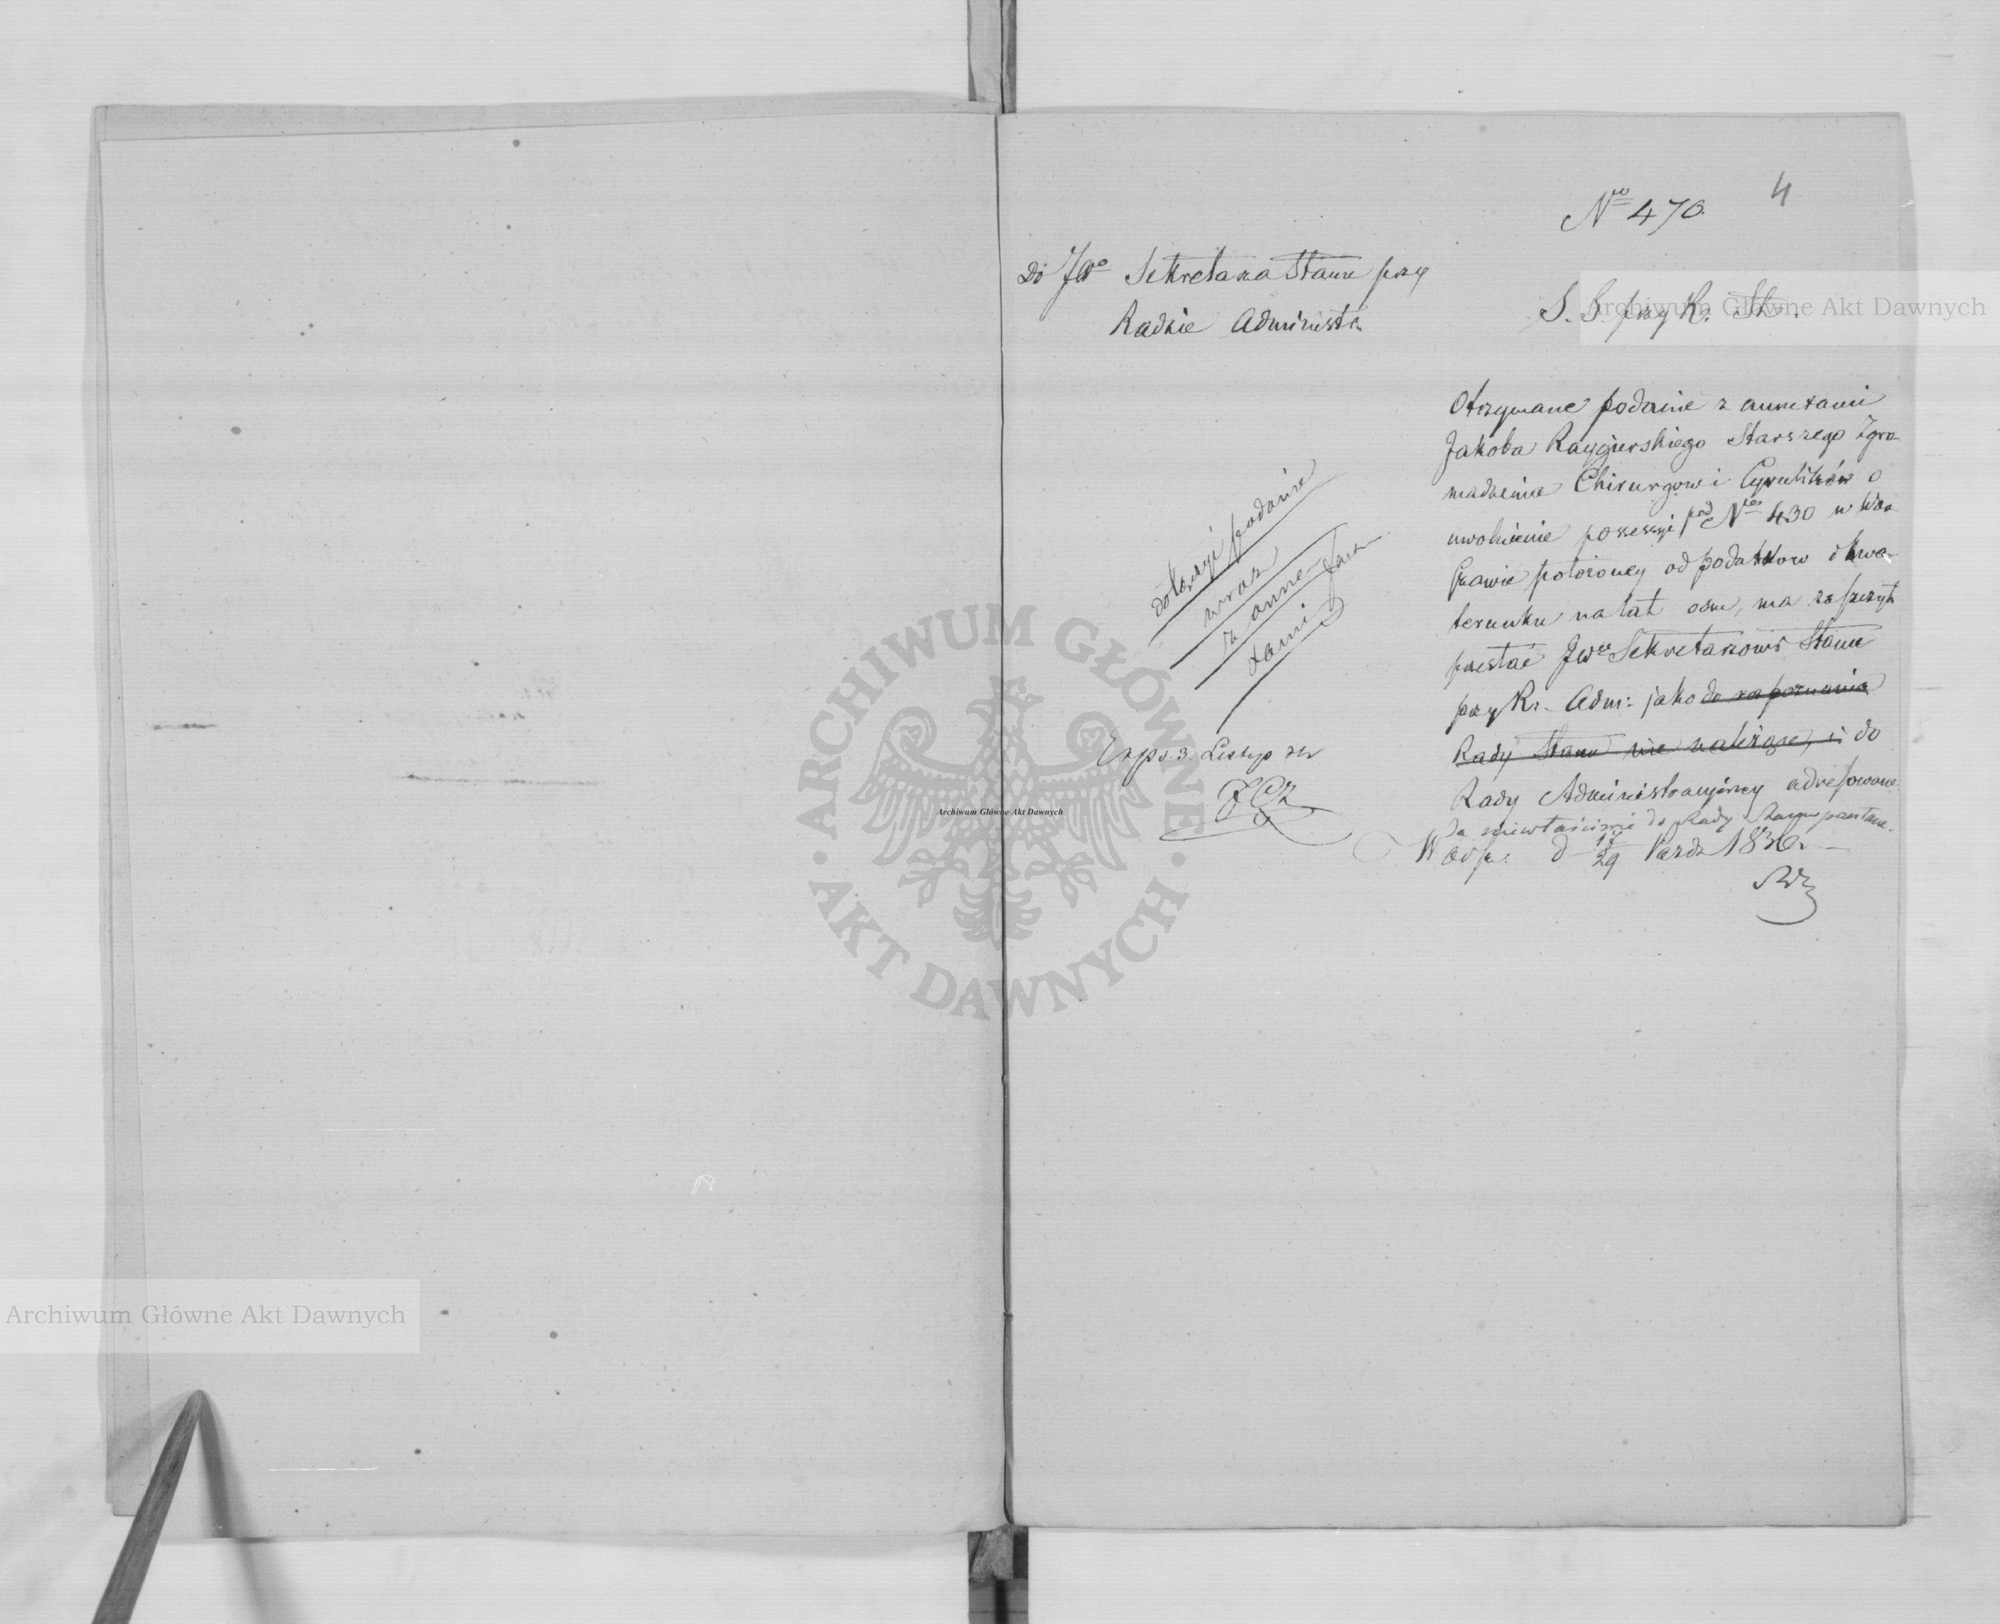 4
Nro 470.
Do JWo Sekretarza Stanu przy
Radzie Administr.
S. S. przy R. St.
Otrzymane podanie z annexami
Jakoba Raygierskiego Starszego Zgro-
madzenia Chirurgow i Cyrulików o
uwolnienie possessyi pod Nrem 430 w War-
szawie położoney od podatkow i kwa-
terunku na lat osm, ma zaszczyt
przesłać JWu Sekretarzowi Stanu
przy R. Adm: jako do rozpoznania
Rady Stanu nie należące, i do
Rady Administracyjney adressowane
a niewłaściwie do Rady Stanu przesłane.
Warsz. d 17/29 Pazdz 1836.
dołączyć podanie
wraz
z anne-
xami
Exp. 3. Listop
Archiwum Główne Akt Dawnych
ARCHIWUM GŁÓWNE
AKT DAWNYCH
Archiwum Główne Akt Dawnych
Archiwum Główne Akt Dawnych